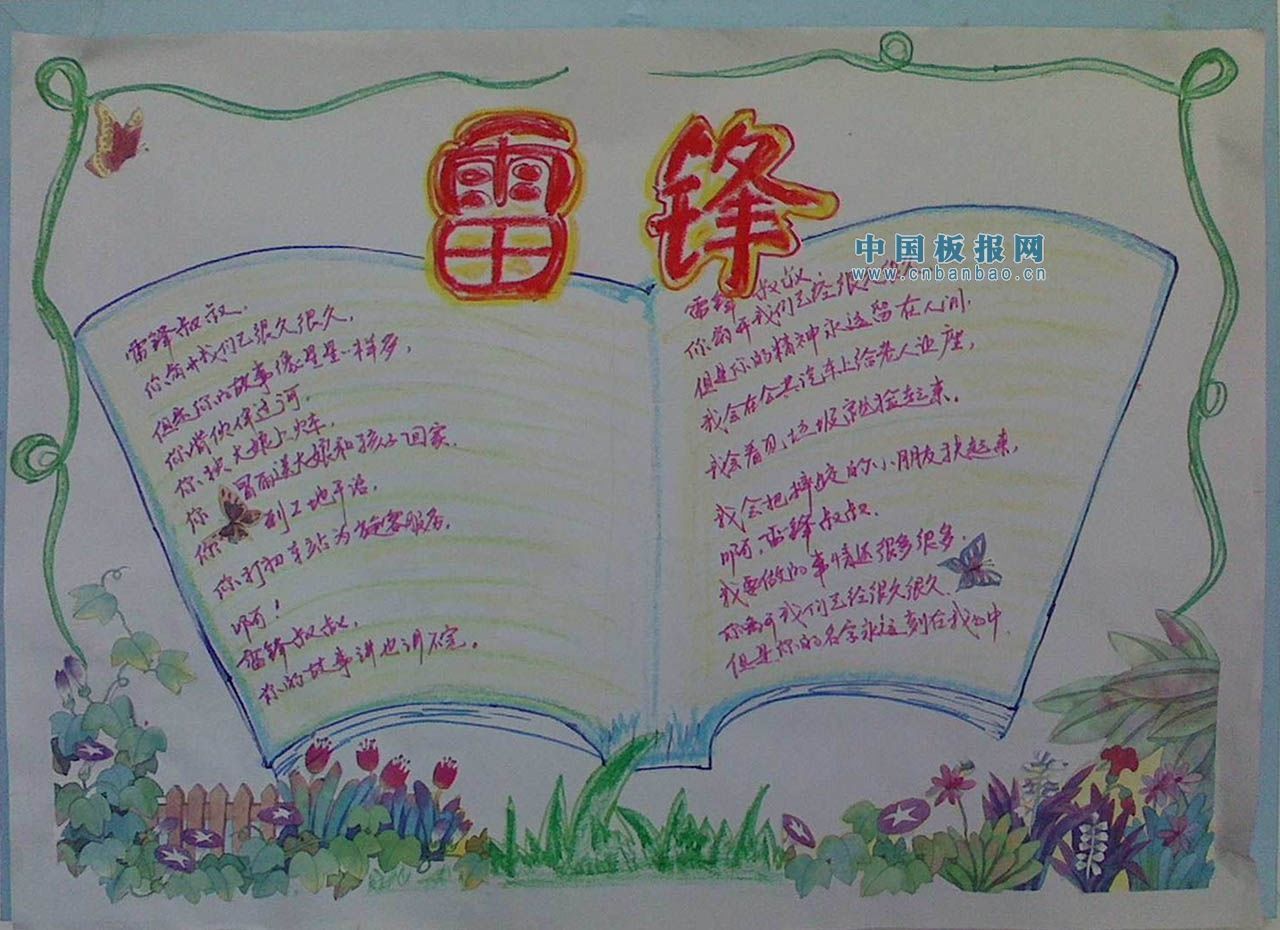 雷锋
中国板报网
www.cnbanbao.cn
雷锋叔叔,
你离开我们已很久很久,
但是你的故事像星星一样多,
你背伙伴过河,
你扶大娘上火车,
你冒雨送大娘和孩子回家,
你到工地干活,
你到车站为旅客服务,
啊!
雷锋叔叔,
你的故事讲也讲不完。
雷锋叔叔
你离开我们已经很久很久
但是你的精神永远留在人间
我会在公共汽车上给老人让座,
我会看见垃圾就捡起来,
我会把摔跤的小朋友扶起来,
啊,雷锋叔叔,
我要做的事情还很多很多,
你离开我们已经很久很久,
但是你的名字永远刻在我心中